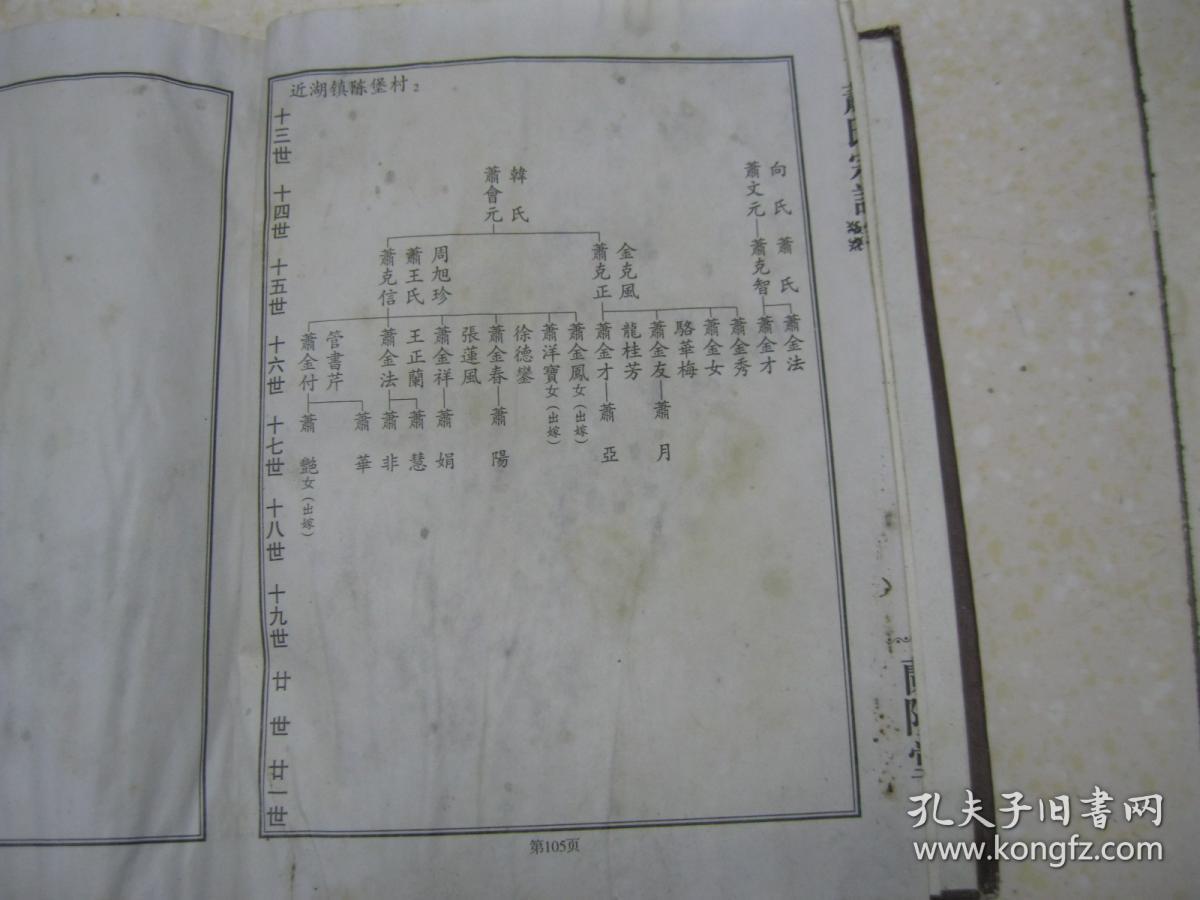 近湖镇陈堡村2
十三世
十四世
十五世
十六世
十七世
十八世
十九世
廿世
廿一世
蕭會元
韓氏
蕭文元
向氏
蕭克信
蕭王氏
周旭珍
蕭克正
金克風
蕭克智
蕭氏
蕭金付
管書芹
蕭金法
王正蘭
蕭金祥
張蓮風
蕭金春
徐德鑾
蕭洋寶女(出嫁)
蕭金鳳女(出嫁)
蕭金才
龍桂芳
蕭金友
駱華梅
蕭金女
蕭金秀
蕭金才
蕭金法
蕭艷女(出嫁)
蕭華
蕭非
蕭慧
蕭娟
蕭陽
蕭亞
蕭月
第105页
蘭陵堂
孔夫子旧书网
www.kongfz.com